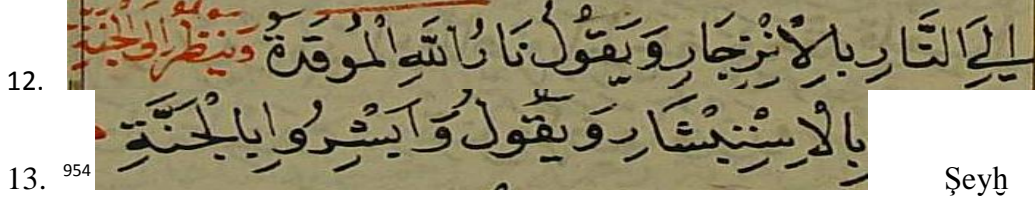 12. اِلَي النَّارِ بِالْاِنْزِجَارِ وَ يَقُولُ نَارُ اللهِ الْمُوقَدَةُ وَيَنْظُرُ اِلَى الْجَنَّةِ
13. 954 بِالْاِسْتِبْشَارِ وَ يَقُولُ وَاَبْشِرُوا بِالْجَنَّةِ Şeyḫ